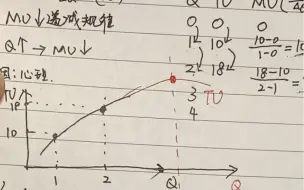 MU↓递减规律
Q↑→MU↓
图:心理
Q TU MU
0 0 0
1 10 10-0/1-0=10
2 18 18-10/2-1=
3 TU
4
18
10
1 2 Q Q